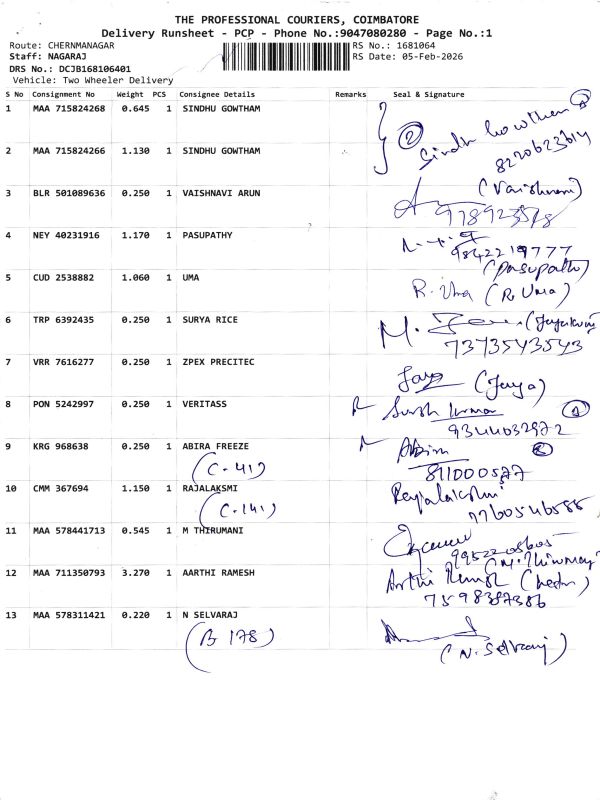 THE PROFESSIONAL COURIERS, COIMBATORE
Delivery Runsheet - PCP - Phone No.:9047080280 - Page No.:1
Route: CHERNMANAGAR RS No.: 1681064
Staff: NAGARAJ RS Date: 05-Feb-2026
DRS No.: DCJB168106401
Vehicle: Two Wheeler Delivery
S No Consignment No Weight PCS Consignee Details Remarks Seal & Signature
1 MAA 715824268 0.645 1 SINDHU GOWTHAM
② Sindhu Gowtham
8220623614
2 MAA 715824266 1.130 1 SINDHU GOWTHAM
3 BLR 501089636 0.250 1 VAISHNAVI ARUN (Vaishnavi)
4 NEY 40231916 1.170 1 PASUPATHY
9842219777
(Pasupathy)
5 CUD 2538882 1.060 1 UMA R. Uma (R. Uma)
6 TRP 6392435 0.250 1 SURYA RICE
7373543543
7 VRR 7616277 0.250 1 ZPEX PRECITEC Jaya (Jaya)
8 PON 5242997 0.250 1 VERITASS Suresh Kumar
9344032972
9 KRG 968638 0.250 1 ABIRA FREEZE Abira
(C-41)
10 CMM 367694 1.150 1 RAJALAKSMI Rajalakshmi
(C-141) 7760546588
11 MAA 578441713 0.545 1 M THIRUMANI
12 MAA 711350793 3.270 1 AARTHI RAMESH Arthi Ramesh
7598387386
13 MAA 578311421 0.220 1 N SELVARAJ
(B 178) (N. Selvaraj)